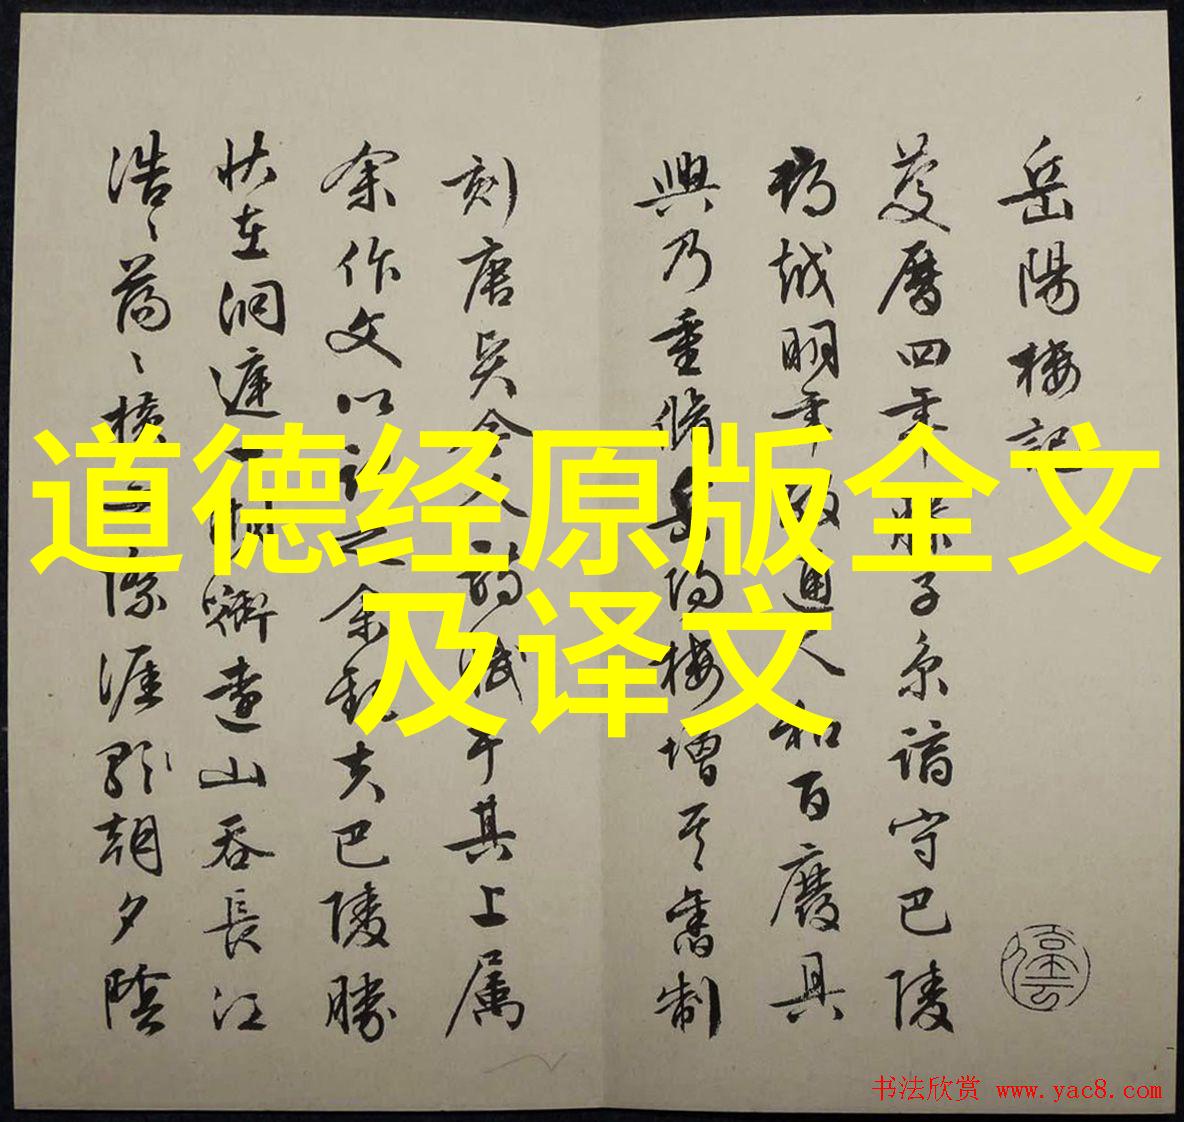 道德经原版全文
及译文
岳陽樓記
慶曆四年滕子京謫守巴陵
郡越明年政通人和百廢具
興乃重脩岳陽樓增其舊制
刻唐今人詩賦于其上屬
余作文以記之余觀夫巴陵勝
狀在洞庭一湖銜遠山吞長江
浩〻蕩〻橫無際涯朝夕陰
书法欣赏 www.yac8.com